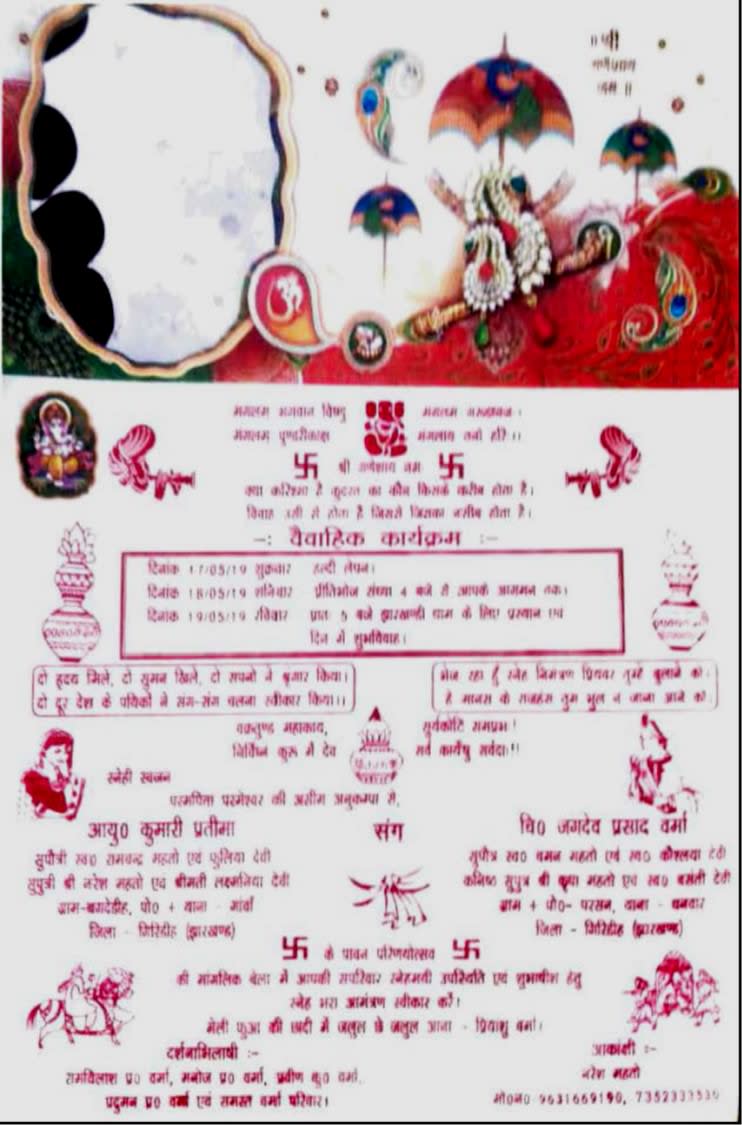 ॥ श्री
गणेशाय
नमः ॥
मंगलम भगवान विष्णु मंगलम गरूड़ध्वज।
मंगलम पुण्डरीकाक्ष मंगलाय तनो हरि ।।
श्री गणेशाय नमः
क्या करिश्मा है कुदरत का कौन किसके करीब होता है।
विवाह उसी से होता है जिससे जिसका नसीब होता है।
-: वैवाहिक कार्यक्रम :-
दिनांक 17/05/19 शुक्रवार हल्दी लेपन।
दिनांक 18/05/19 शनिवार प्रीतिभोज संध्या 4 बजे से आपके आगमन तक।
दिनांक 19/05/19 रविवार प्रातः 5 बजे झारखण्डी धाम के लिए प्रस्थान एवं
दिन में शुभविवाह।
दो हृदय मिले, दो सुमन खिले, दो सपनो ने श्रृंगार किया।
दो दूर देश के पथिकों ने संग-संग चलना स्वीकार किया।।
भेज रहा हूँ स्नेह निमंत्रण प्रियवर तुम्हें बुलाने को।
हे मानस के राजहंस तुम भुल न जाना आने को।
वक्रतुण्ड महाकाय, सूर्यकोटि समप्रभ।
निर्विघ्न कुरू मे देव सर्व कार्येषु सर्वदा।।
स्नेही स्वजन
परमपिता परमेश्वर की असीम अनुकम्पा से,
आयु0 कुमारी प्रतीमा
सुपौत्री स्व0 रामचन्द्र महतो एवं फुलिया देवी
सुपुत्री श्री नरेश महतो एवं श्रीमती लक्षमनिया देवी
ग्राम-बगदेडीह, पो0 + थाना - गांवाँ
जिला - गिरिडीह (झारखण्ड)
संग
चि0 जगदेव प्रसाद वर्मा
सुपौत्र स्व0 बमन महतो एवं स्व0 कौशल्या देवी
कनिष्ठ सुपुत्र श्री कृपा महतो एवं स्व0 बसंती देवी
ग्राम + पो0- परसन, थाना - धनवार
जिला - गिरिडीह (झारखण्ड)
के पावन परिणयोत्सव
की मांगलिक बेला में आपकी सपरिवार स्नेहमयी उपस्थिति एवं शुभाषीश हेतु
स्नेह भरा आमंत्रण स्वीकार करें।
मेली फुआ की छादी में जलुल छे जलुल आना - प्रियांशु वर्मा।
दर्शनाभिलाषी :-
रामविलाश प्र0 वर्मा, मनोज प्र0 वर्मा, प्रवीण कु0 वर्मा,
प्रदुमन प्र0 वर्मा एवं समस्त वर्मा परिवार।
आकांक्षी :-
नरेश महतो
मो0नं0-9631669190, 7352333530